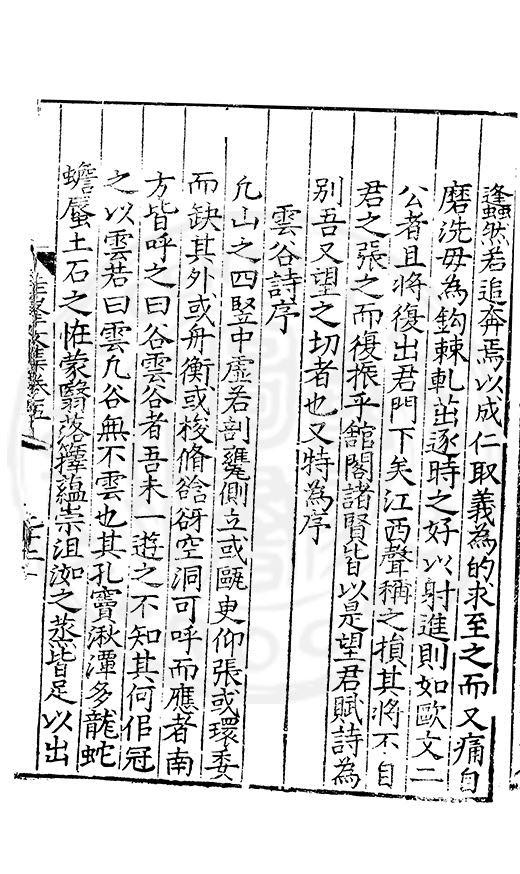 蠭然若追奔焉以成仁取義為的求至之而又痛自
磨洗毋為鈎棘軋茁逐時之好以射進則如歐文二
公者且將復出君門下矣江西聲稱之損其將不自
君之張之而復振乎舘閣諸賢皆以是望君賦詩為
別吾又望之切者也又特為序
雲谷詩序
凣山之四竪中虛若剖甕側立或甌臾仰張或環委
而缺其外或舟衡或梭脩谽谺空洞可呼而應者南
方皆呼之曰谷雲谷者吾未一遊之不知其何佀冠
之以雲若曰雲凣谷無不雲也其孔竇湫潭多龍蛇
蟾蜃土石之恠蒙翳落蘀蘊崇沮洳之蒸皆足以出
集卷五